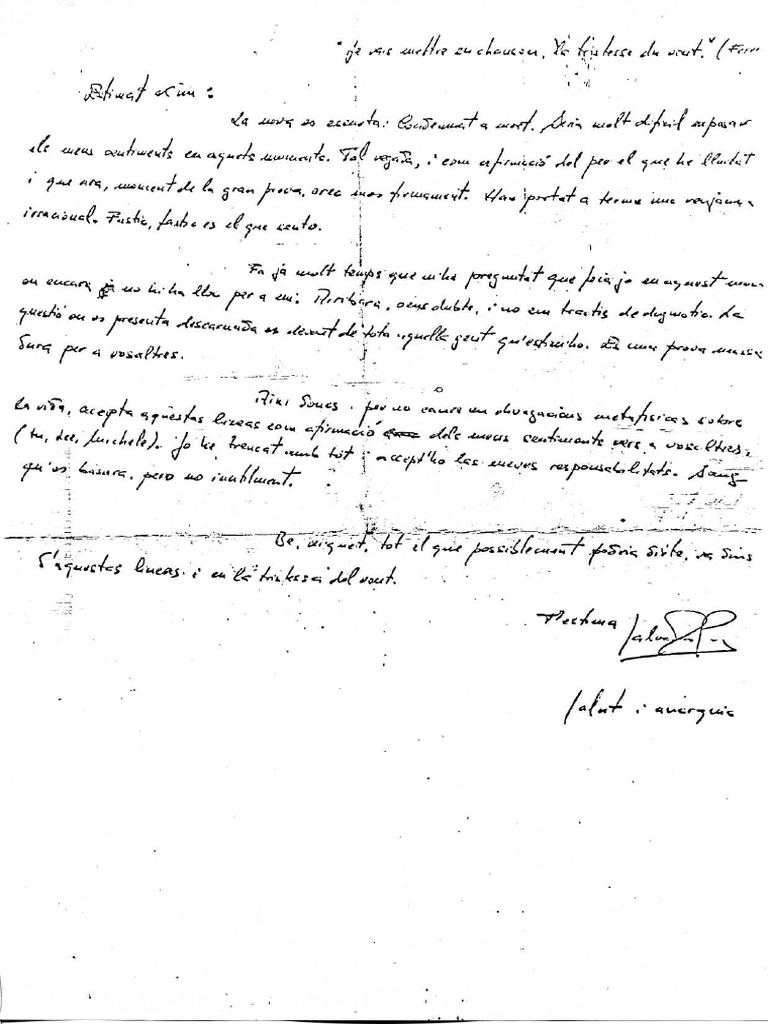 "je vais mettre en chanson, la tristesse du vent." (Ferr
Estimat Kim :
La nova es escueta: Condemnat a mort. Seria molt dificil exposar
els meus sentiments en aquets moments. Tal vegada, i com afirmació del per el que he lluitat
i que ara, moment de la gran prova, crec mes firmament. Han portat a terme una venjança
irracional. Fastic, fastic es el que sento.
Fa jà molt temps que m'he preguntat que feia jo en aquest mon
on encara no hi ha lloc per a mi. Arribara, sens dubte, i no em tractis de dogmatic. La
questió on es presenta descarnada es devant de tota aquella gent qu'estimo. Es una prova massa
dura per a vosaltres.
Aixi doncs, per no caure en divagacions metafisicas sobre
la vida, accepta aquestas lineas com afirmació dels meus sentiments vers a vosaltres,
(tu, Michele). Jo he trencat amb tot i accept'ho las meves responsabilitats. Sang
qu'es, pero no inutilment.
Be, niquet, tot el que possiblement podria dirte, va dins
d'aquestas lineas i en la tristessa del vent.
Salvador
Salut i anarquia